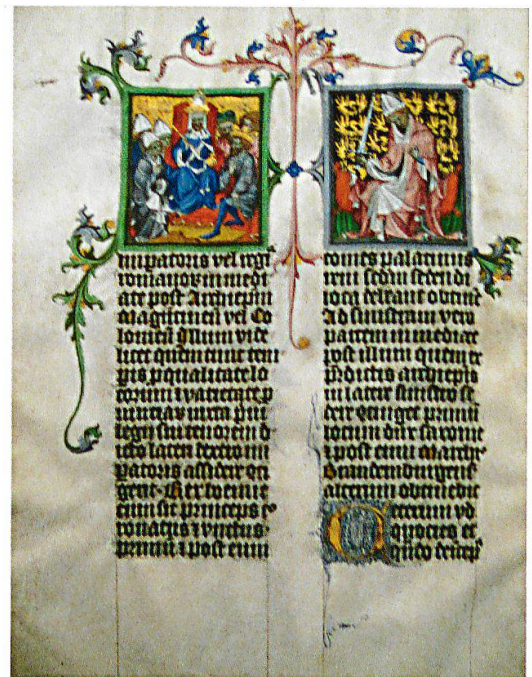 impatoris vel regī
romanoꝝ immedi
ate post Archiepm̄
Magūtinū vel Co
loniēn̄ illum vide
licet quem tunc tem
pis ꝑ qualitate lo
corum ⁊ varietate ꝓ
uinciaꝝ iuxta p̄ui
legii sui tenorem d
cto latere dextro im
patoris assidere ꝯti
gerit. Rex boemie
cum sit princeps co
ronatus ⁊ vnctus
primū ⁊ post eum
comes palatinus
reni sedm̄ sedendi
loca debeant obtine
Ad sinistram vero
partem immediate
post illum quem ex
p̄dictis archiepis
in latere sinistro se
dere ꝯtiget primū
locum dux saxonie
⁊ post eum Marchio
Brandemburgens
alterum obtinebit
Ceterum
quocies et